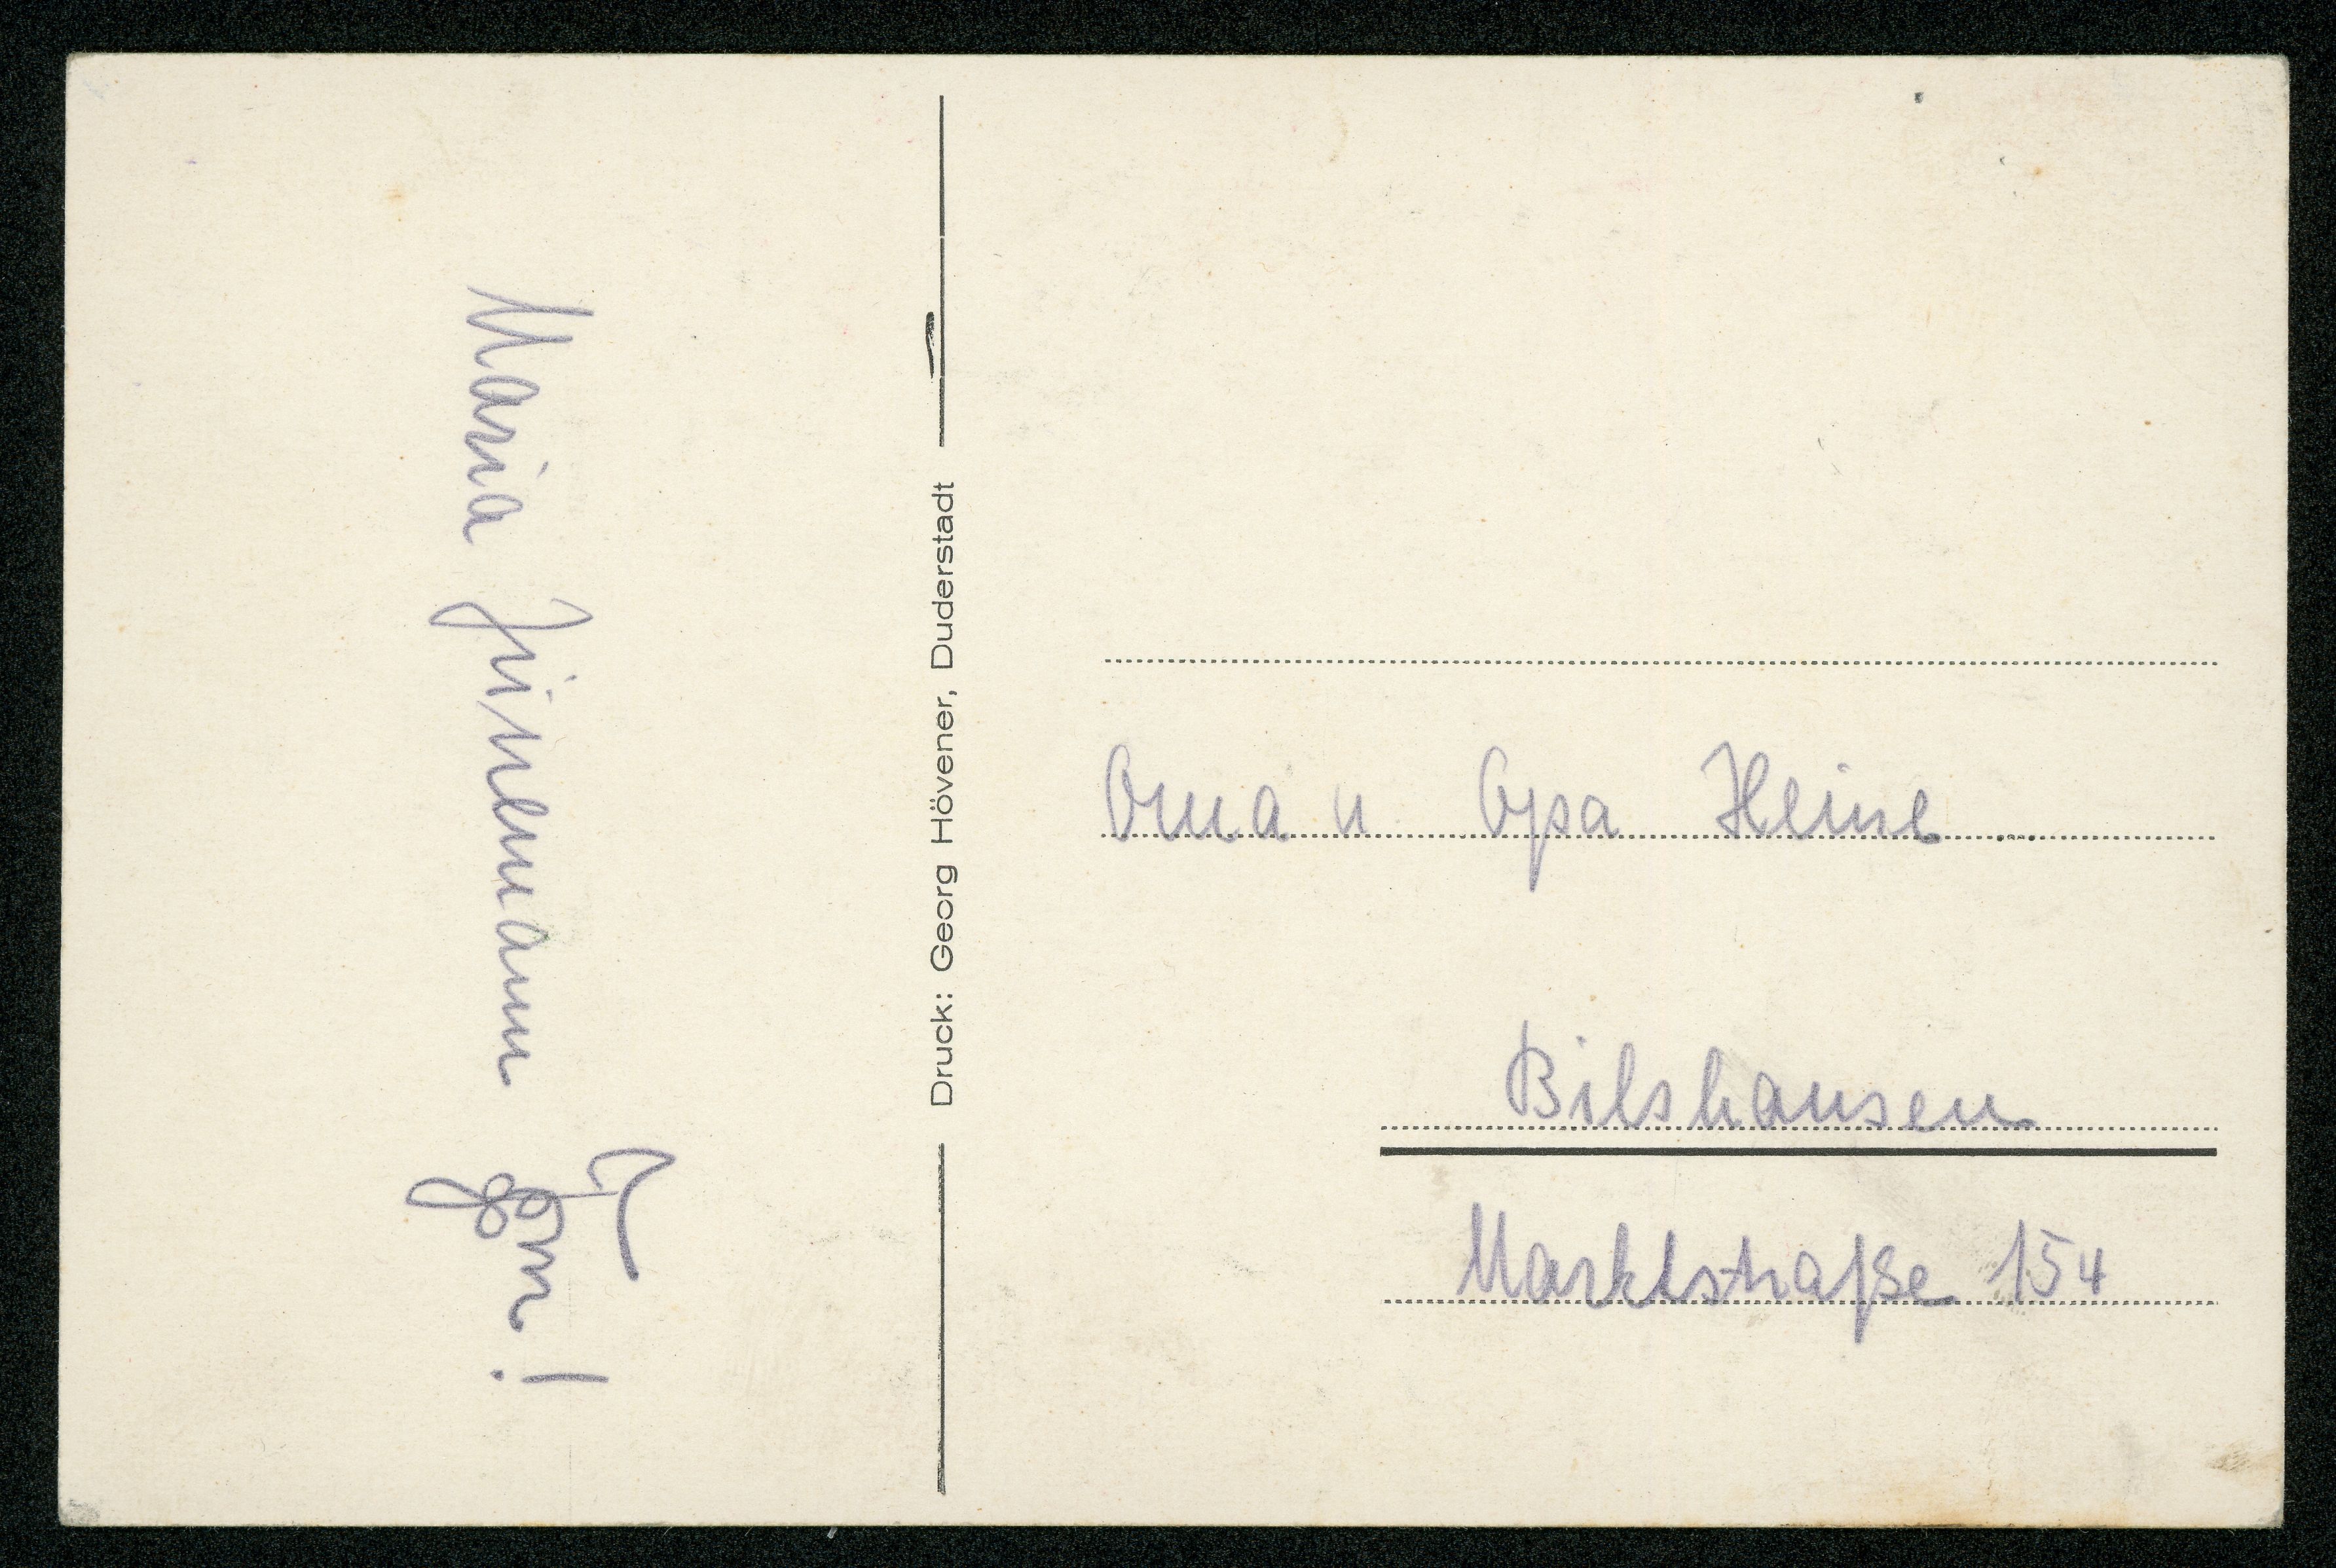 Maria Jünemann
Druck: Georg Hövener, Duderstadt
Oma u Opa Heine
Bilshausen
Marktstraße 154